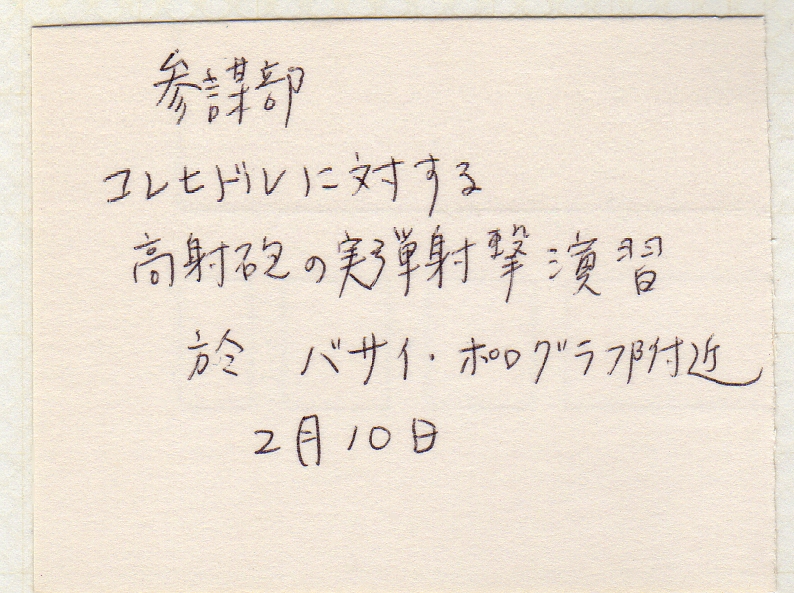 参謀部
コレヒドルに対する
高射砲の実弾射撃演習
於 バサイ・ポログラフ附近
2月10日